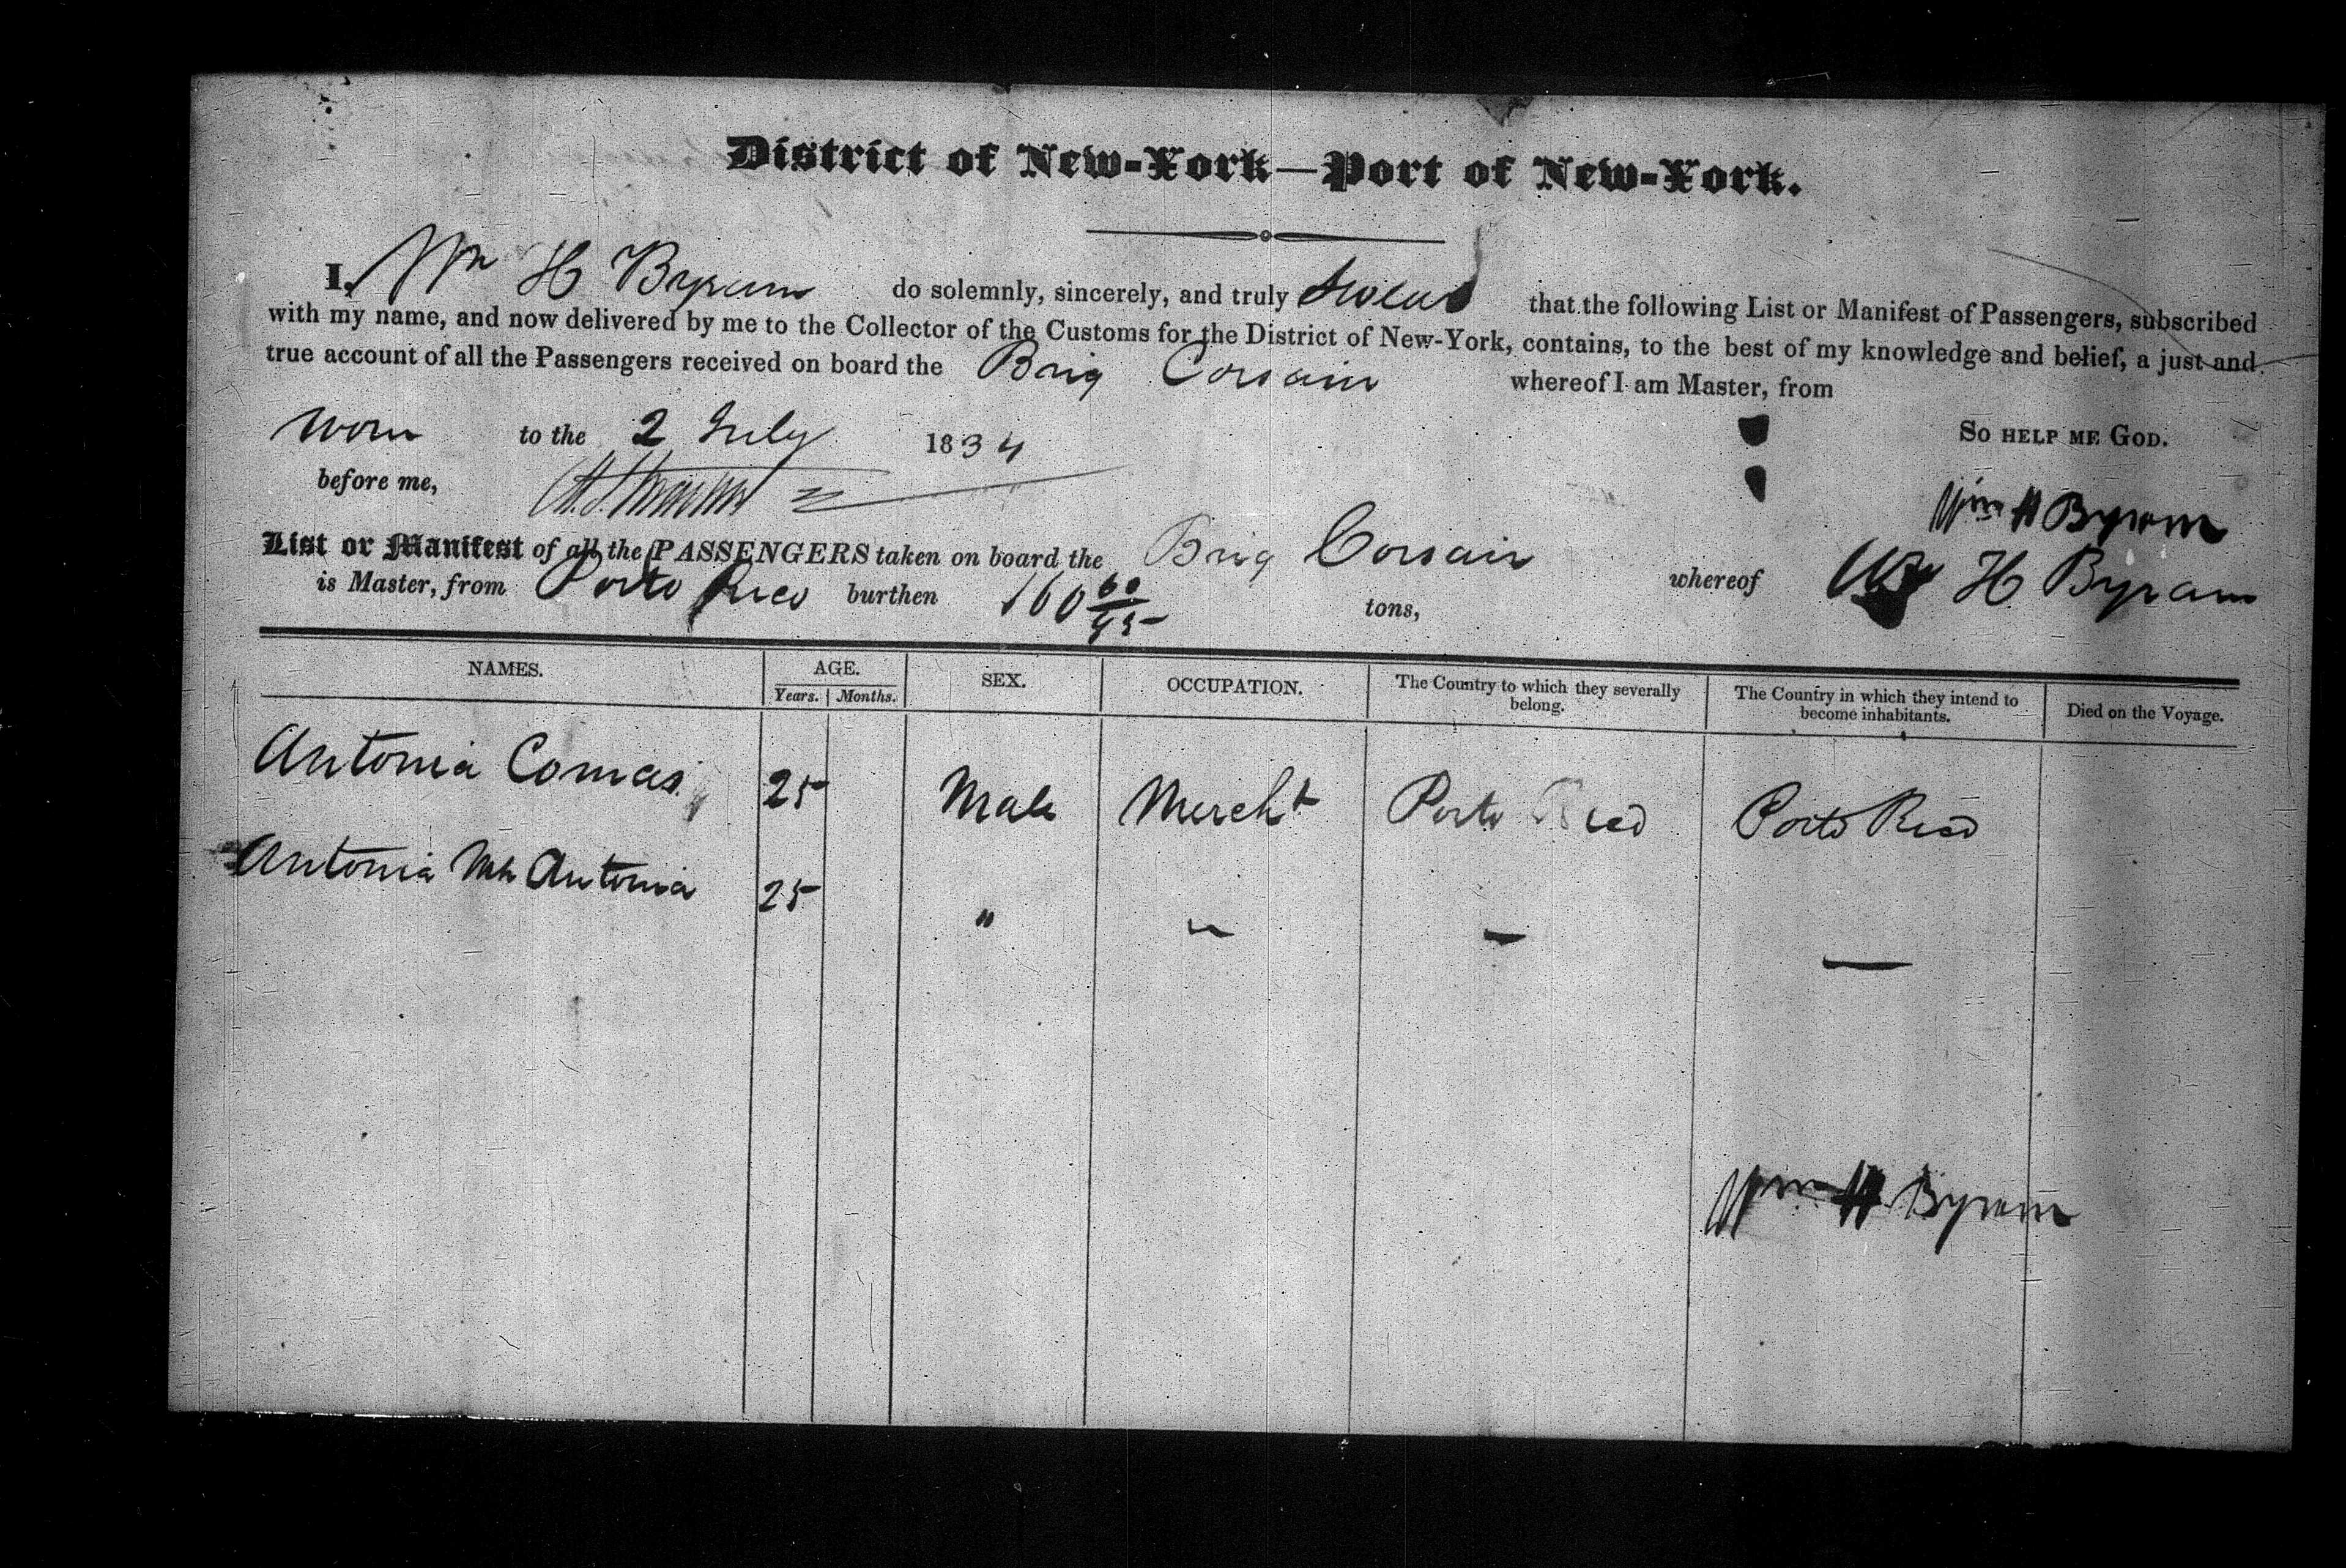 District of New-York—Port of New-York.
I, Wm H Byram do solemnly, sincerely, and truly swear that the following List or Manifest of Passengers, subscribed
with my name, and now delivered by me to the Collector of the Customs for the District of New-York, contains, to the best of my knowledge and belief, a just and
true account of all the Passengers received on board the Brig Corsair whereof I am Master, from
worn to the 2 July 1834 So help me God.
before me,
Wm H Byram
List or Manifest of all the PASSENGERS taken on board the Brig Corsair whereof Wm H Byram
is Master, from Porto Rico burthen 160 60/95 tons,
NAMES. AGE. SEX. OCCUPATION. The Country to which they severally belong. The Country in which they intend to become inhabitants. Died on the Voyage.
Years. Months.
Antonia Comas 25 Male Mercht Porto Rico Porto Rico
Antonia Antonia 25 " " — —
Wm H Byram